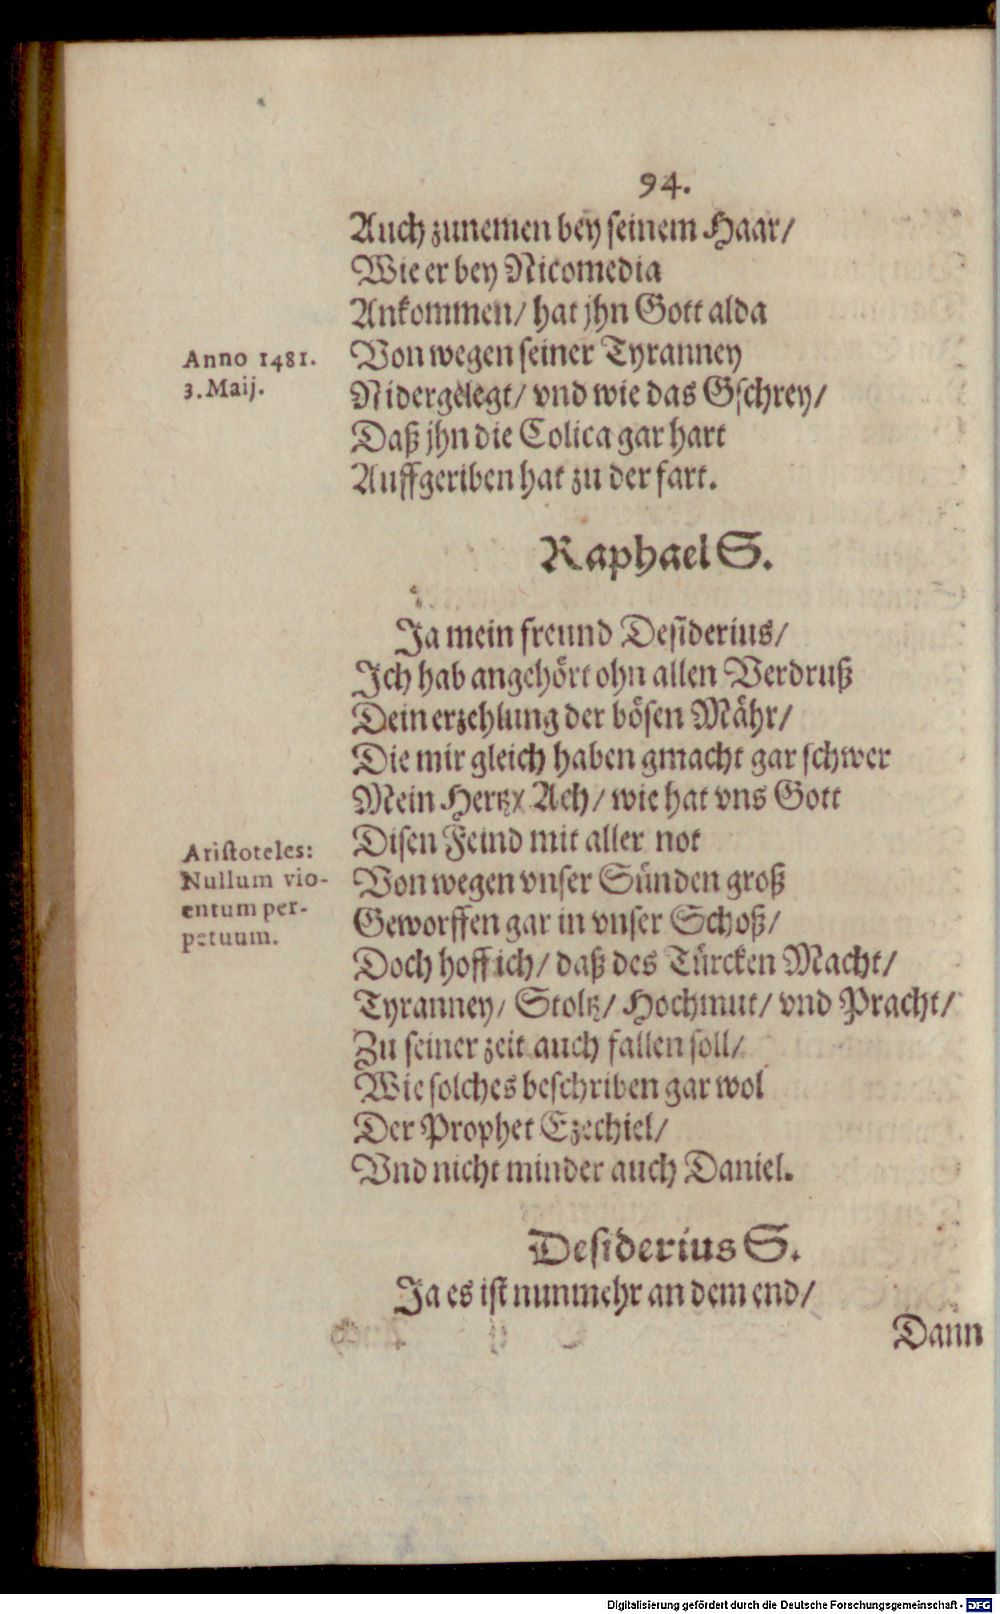 94.
Auch zunemen bey seinem Haar/
Wie er bey Nicomedia
Ankommen/ hat jhn Gott alda
Anno 1481.
3. Maij.
Von wegen seiner Tyranney
Nidergelegt/ vnd wie das Gschrey/
Daß jhn die Colica gar hart
Auffgeriben hat zu der fart.
Raphael S.
Ja mein freund Desiderius/
Ich hab angehört ohn allen Verdruß
Dein erzehlung der bösen Mähr/
Die mir gleich haben gmacht gar schwer
Mein Hertz/ Ach/ wie hat vns Gott
Aristoteles:
Nullum vio-
entum per-
petuum.
Disen Feind mit aller not
Von wegen vnser Sünden groß
Geworffen gar in vnser Schoß/
Doch hoff ich/ daß des Türcken Macht/
Tyranney/ Stoltz/ Hochmut/ vnd Pracht/
Zu seiner zeit auch fallen soll/
Wie solches beschriben gar wol
Der Prophet Ezechiel/
Vnd nicht minder auch Daniel.
Desiderius S.
Ja es ist nunmehr an dem end/
Dann
Digitalisierung gefördert durch die Deutsche Forschungsgemeinschaft - DFG